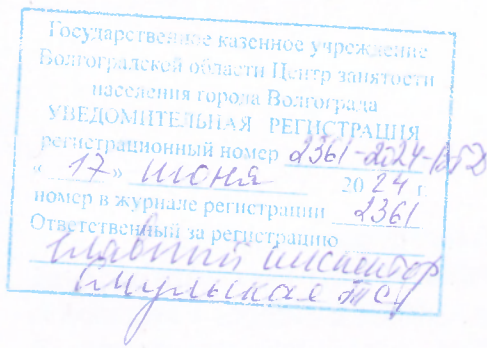 Государственное казенное учреждение
Волгоградской области Центр занятости
населения города Волгограда
УВЕДОМИТЕЛЬНАЯ РЕГИСТРАЦИЯ
регистрационный номер 2361-2024-
«17» июня 2024 г.
номер в журнале регистрации 2361
Ответственный за регистрацию
главный инспектор